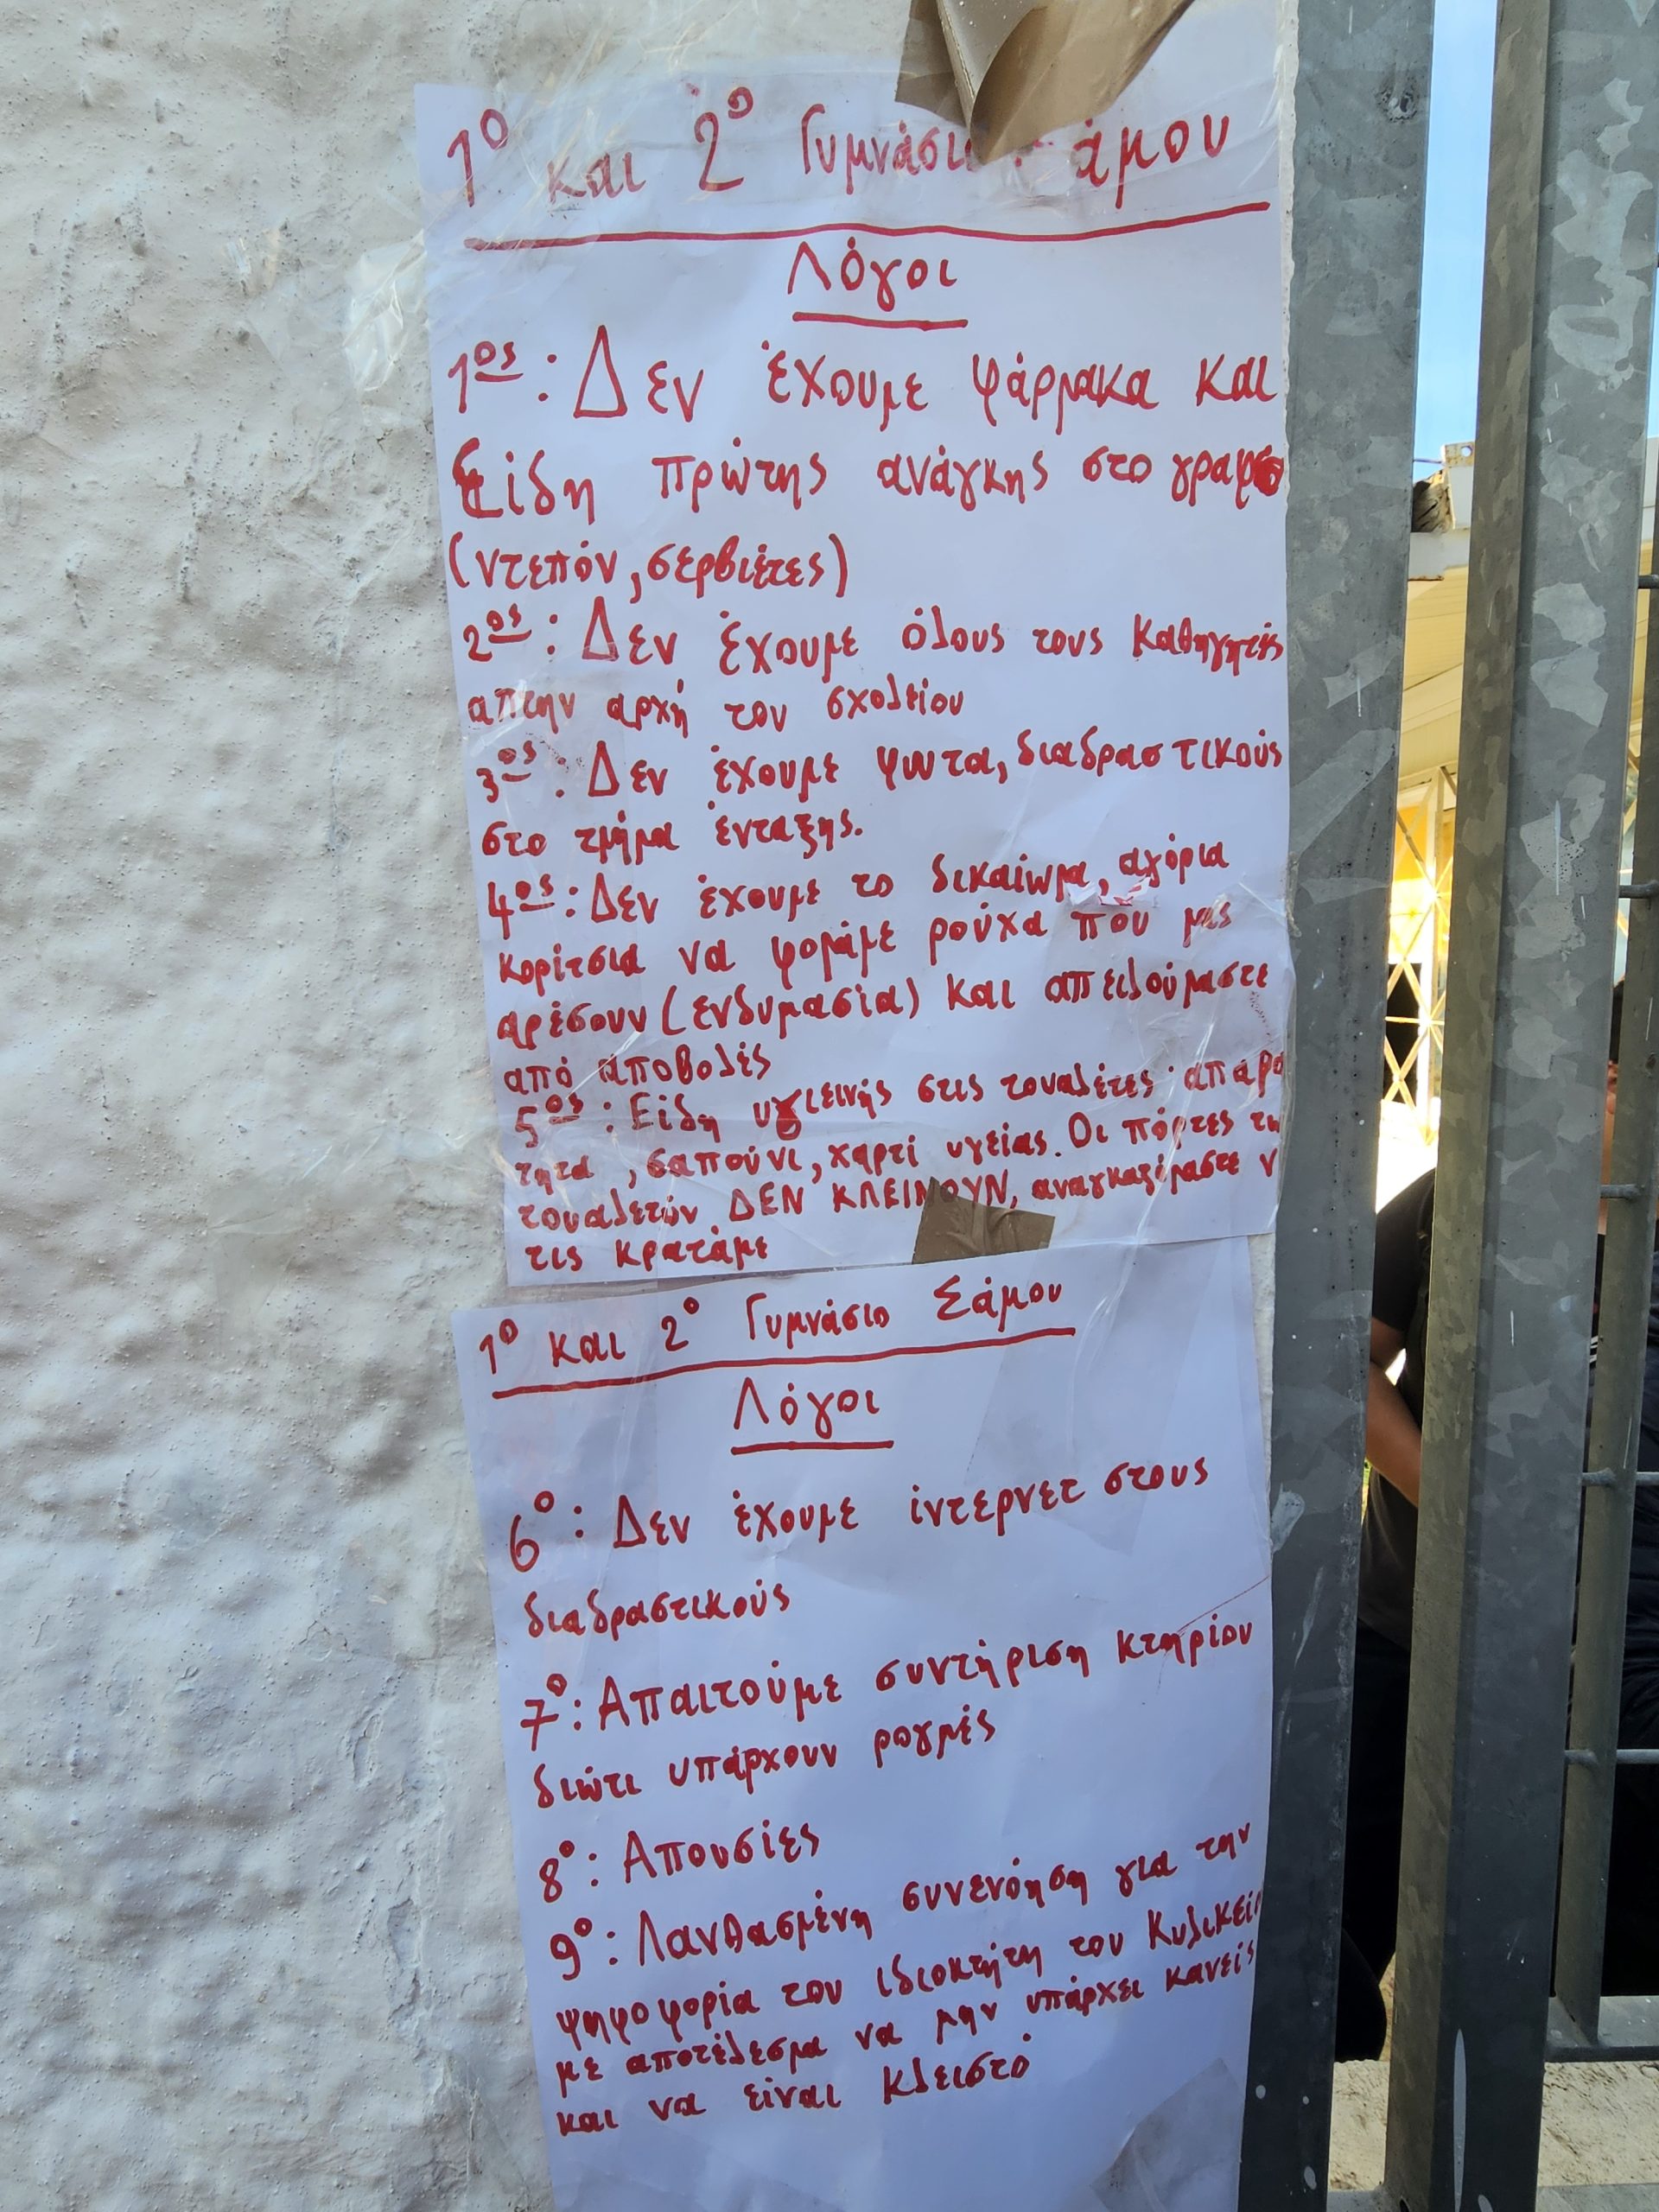 1ο και 2ο Γυμνάσιο Σάμου
Λόγοι
1ος : Δεν έχουμε φάρμακα και
Είδη πρώτης ανάγκης στο γραφ
(ντεπόν, σερβιέτες)
2ος : Δεν έχουμε όλους τους καθηγητές
απτην αρχή του σχολείου
3ος : Δεν έχουμε φωτα, διαδραστικούς
στο τμήμα ένταξης.
4ος : Δεν έχουμε το δικαίωμα, αγόρια
κορίτσια να φοράμε ρούχα που μας
αρέσουν (ενδυμασία) και απειλούμαστε
από αποβολές
5ος : Είδη υγιεινής στις τουαλέτες· απαρα
τητα, σαπούνι, χαρτί υγείας. Οι πόρτες τω
τουαλετών ΔΕΝ ΚΛΕΙΝΟΥΝ, αναγκαζόμαστε ν
τις κρατάμε
1ο και 2ο Γυμνάσιο Σάμου
Λόγοι
6ο : Δεν έχουμε ίντερνετ στους
διαδραστικούς
7ο : Απαιτούμε συντήριση κτηρίου
διώτι υπάρχουν ρογμές
8ο : Απουσίες
9ο : Λανθασμένη συνενόηση για την
ψηφοφορία του ιδιοκτήτη του Κυλικεί
με αποτέλεσμα να μην υπάρχει κανείς
και να είναι κλειστό